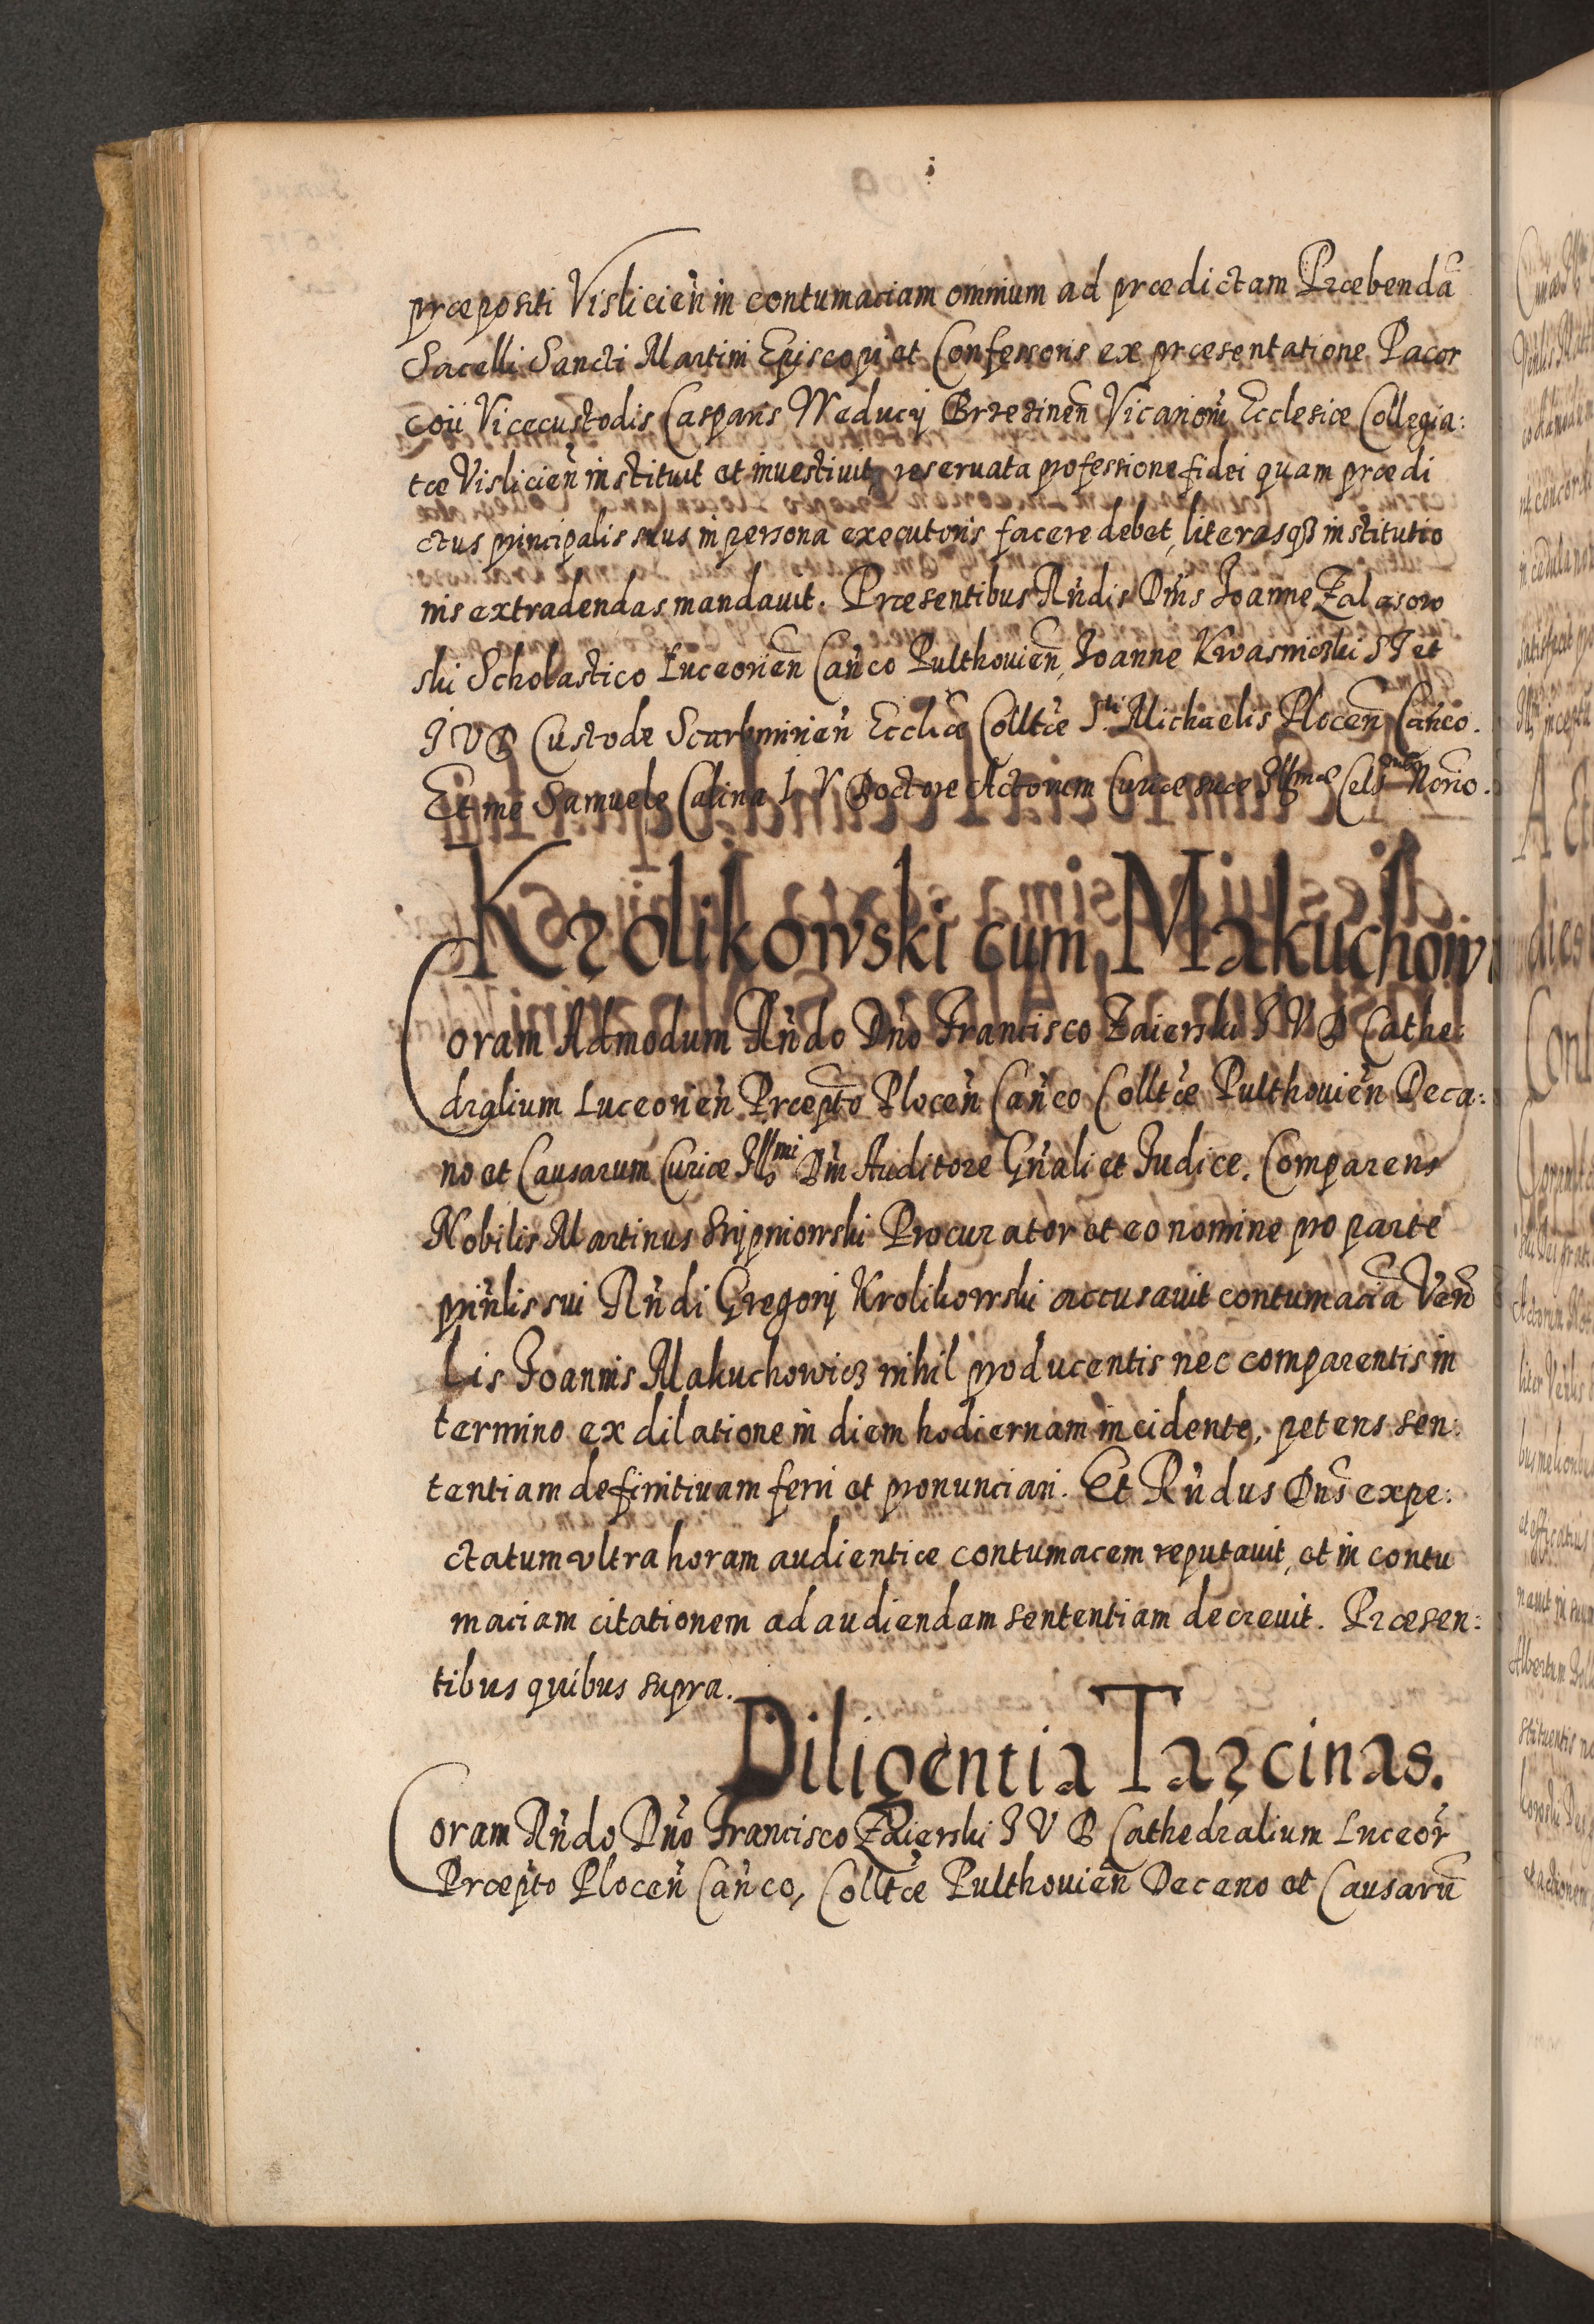 præpositi Vislicień in contumaciam omnium ad prædictam Præbendã
Sacelli Sancti Martini Episcopi et Confessoris ex præsentatione Pacor
coii Vicecustodis Casparis Weducij Brzezineñ Vicariorũ Ecclesiæ Collegia:
tæ Vislicień instituit et inuestiuit, reseruata professione fidei quam prædi
ctus principalis suus in persona executoris facere debet, literasqȝ institutio
nis extradendas mandauit. Præsentibus Rńdis Dñis Joanne Zalasow
ski Scholastico Luceorieñ Cańco Pulthouieñ, Joanne Kwasniewski ST et
JVD Custode Scarbimirień Ecclię Colltæ Sti Michaelis Ploceñ Cańco.
Et me Samuele Calina I V Doctore Actorum Curiæ suæ Illmæ Cels Norio.
Krolikowski cum Makuchow
Coram Admodum Rńdo Dńo Francisco Zaierski J V D Cathe:
dralium Luceorień Præpto Ploceń Cańco Colltæ Pulthouień Deca:
no et Causarum Curiæ Illmi Dni Auditore Gńali et Judice. Comparens
Nobilis Martinus Srzypniowski Procurator et eo nomine pro parte
prińlis sui Rńdi Gregorij Krolikowski accusauit contumaciã Venb
lis Joannis Makuchowicz nihil producentis nec comparentis in
termino ex dilatione in diem hodiernam incidente, petens sen:
tentiam definitiuam ferri et pronunciari. Et Rńdus Dñs expe:
ctatum vltra horam audientiæ contumacem reputauit, et in contu
maciam citationem ad audiendam sententiam decreuit. Præsen:
tibus quibus supra.
Diligentia Tarcinas.
Coram Rńdo Dńo Francisco Zaierski J V D Cathedralium Luceoŕ
Præpto Plocen Cańco, Colltæ Pulthouieñ Decano et Causarũ